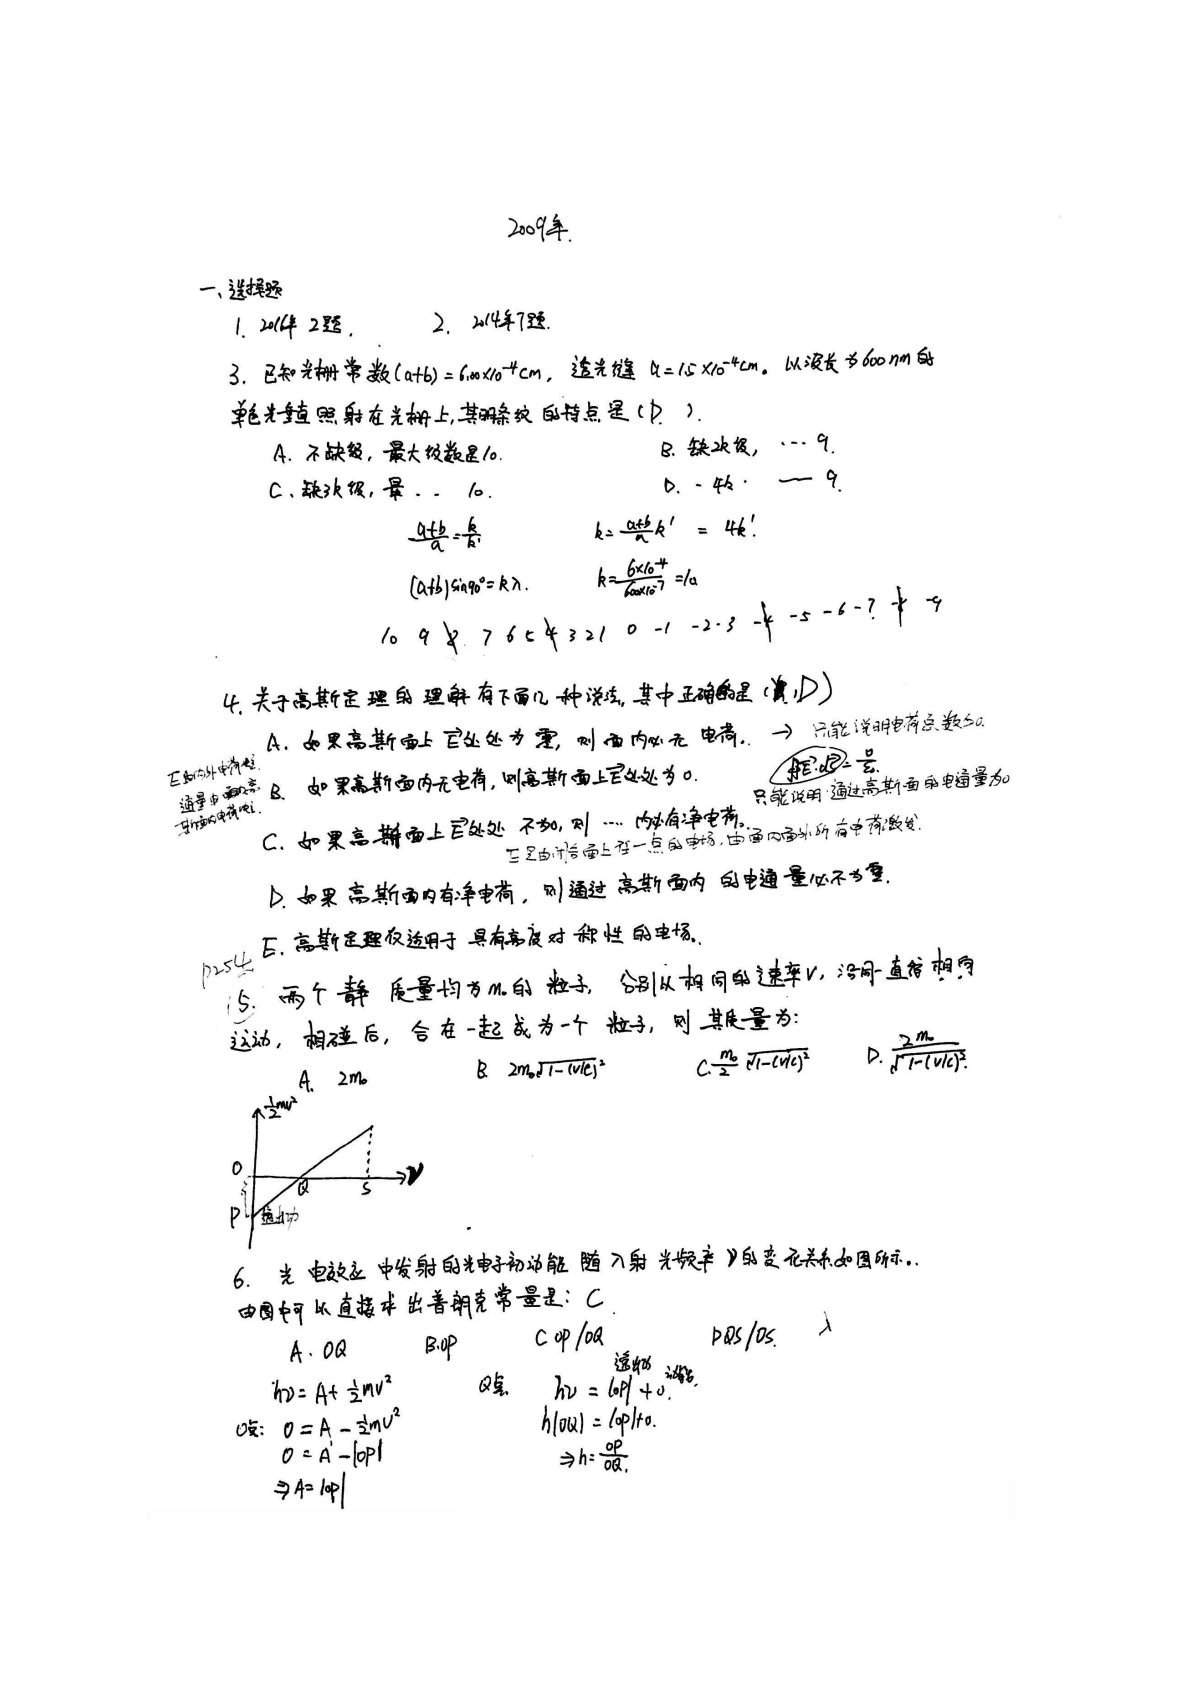 2009年.
一、选择题
1. 2016年 2题. 2. 2014年7题.
3. 已知光栅常数(a+b)=6.00×10⁻⁴cm, 透光缝 a=1.5×10⁻⁴cm。以波长为600nm的
单色光垂直照射在光栅上,其明条纹的特点是(D. ).
A. 不缺级, 最大级数是10. B. 缺2k级, … 9.
C、缺3k级, 最 . . 10. D. - 4k · — 9.
(a+b)/a = k/k' k= (a+b)/a k' = 4k'.
(a+b)sin90°=kλ. k= 6×10⁻⁴/600×10⁻⁷ =10
10 9 8 7 6 5 4 3 2 1 0 -1 -2 -3 -4 -5 -6 -7 -8 -9
4. 关于高斯定理的理解有下面几种说法, 其中正确的是 ( D)
A. 如果高斯面上 E处处为零, 则面内必无电荷. → 只能说明电荷总数为0.
∮E·dS = 0/ε₀
B. 如果高斯面内无电荷, 则高斯面上E处处为0.
只能说明 通过高斯面的电通量为0
C. 如果高斯面上E处处不为0, 则 …. 内必有净电荷。
E是由 面上任一点的电场, 由面内面外所有电荷激发.
D. 如果高斯面内有净电荷, 则通过高斯面内的电通量必不为零.
E. 高斯定理仅适用于具有高度对称性的电场.
P254
5. 两个静质量均为m₀的粒子, 分别以相同的速率V, 沿同一直线相向
运动, 相碰后, 合在一起成为一个粒子, 则其质量为:
A. 2m₀ B. 2m₀√1-(v/c)² C. m₀/2 √1-(v/c)² D. 2m₀/√1-(v/c)².
½mv²
O Q S ν
P 逸出功
6. 光电效应中发射的光电子初动能随入射光频率ν的变化关系如图所示..
由图中可以直接求出普朗克常量是: C
A. OQ B. OP C OP/OQ D QS/OS. λ
hν=A+½mv² Q点 hν = |OP| + 0.
逸出功 动能
O点: 0=A-½mv² h|OQ| = |OP|+0.
0 = A -|OP| ⇒h= OP/OQ.
⇒A=|OP|